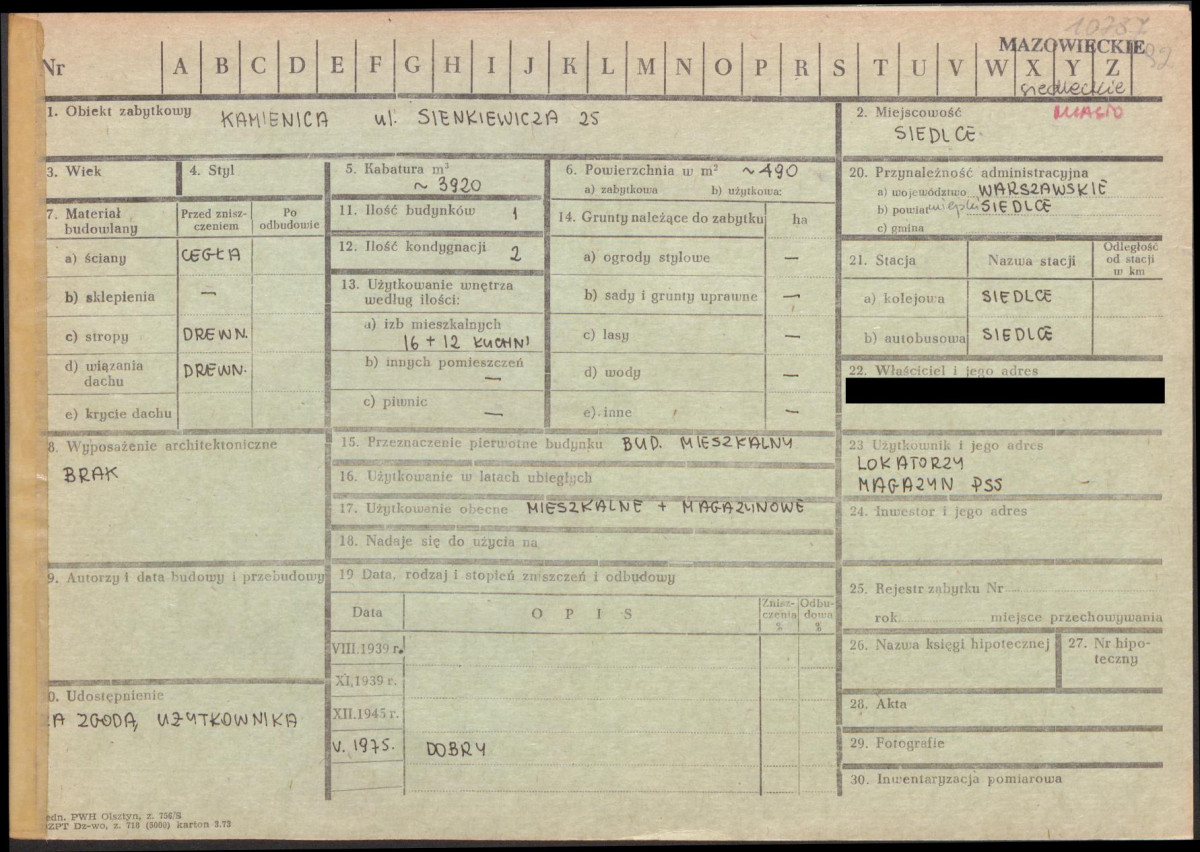 10737
MAZOWIECKIE
Nr A B C D E F G H I J K L M N O P R S T U V W X Y Z
siedleckie
1. Obiekt zabytkowy KAMIENICA ul. SIENKIEWICZA 25
2. Miejscowość MIASTO
SIEDLCE
3. Wiek
4. Styl
5. Kabatura m³
~ 3920
6. Powierzchnia w m² ~490
a) zabytkowa b) użytkowa:
20. Przynależność administracyjna
a) województwo WARSZAWSKIE
b) powiat miejski SIEDLCE
c) gmina
7. Materiał budowlany
Przed zniszczeniem
Po odbudowie
a) ściany CEGŁA
b) sklepienia —
c) stropy DREWN.
d) wiązania dachu DREWN.
e) krycie dachu
11. Ilość budynków 1
12. Ilość kondygnacji 2
13. Użytkowanie wnętrza
według ilości:
a) izb mieszkalnych
16 + 12 KUCHNI
b) innych pomieszczeń
—
c) piwnic —
14. Grunty należące do zabytku ha
a) ogrody stylowe —
b) sady i grunty uprawne —
c) lasy —
d) wody —
e) inne —
21. Stacja
Nazwa stacji
Odległość od stacji w km
a) kolejowa SIEDLCE
b) autobusowa SIEDLCE
22. Właściciel i jego adres
8. Wyposażenie architektoniczne
BRAK
15. Przeznaczenie pierwotne budynku BUD. MIESZKALNY
16. Użytkowanie w latach ubiegłych
17. Użytkowanie obecne MIESZKALNE + MAGAZYNOWE
18. Nadaje się do użycia na
23 Użytkownik i jego adres
LOKATORZY
MAGAZYN PSS
24. Inwestor i jego adres
9. Autorzy i data budowy i przebudowy
19 Data, rodzaj i stopień zniszczeń i odbudowy
Data
OPIS
Zniszczenia %
Odbudowa %
VIII.1939 r.
XI.1939 r.
XII.1945 r.
V. 1975. DOBRY
25. Rejestr zabytku Nr
rok miejsce przechowywania
26. Nazwa księgi hipotecznej
27. Nr hipoteczny
28. Akta
29. Fotografie
30. Inwentaryzacja pomiarowa
0. Udostępnienie
ZA ZGODĄ UŻYTKOWNIKA
edn. PWH Olsztyn, z. 756/S
OZPT Dz-wo, z. 718 (5000) karton 3.73